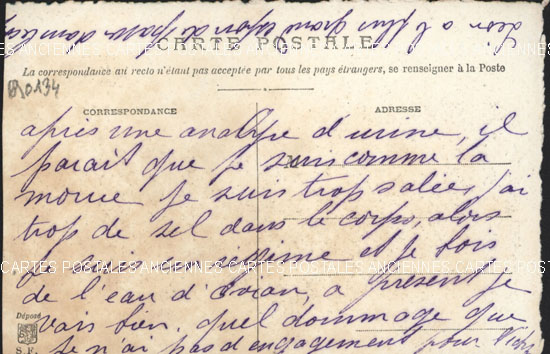 CARTE POSTALE
La correspondance au recto n'étant pas acceptée par tous les pays étrangers, se renseigner à la Poste
0134
CORRESPONDANCE
ADRESSE
après une analyse d'urine, il
parait que je suis comme la
morue je suis trop salée, j'ai
trop de sel dans le corps, alors
je suis un régime et je bois
CARTES POSTALES ANCIENNES CARTES POSTALES ANCIENNES CARTES POSTALES ANCIENNES
de l'eau d'Evian, a présent je
vais bien, quel dommage que
je n'ai pas d'engagement pour Vichy
Déposé
S.F.